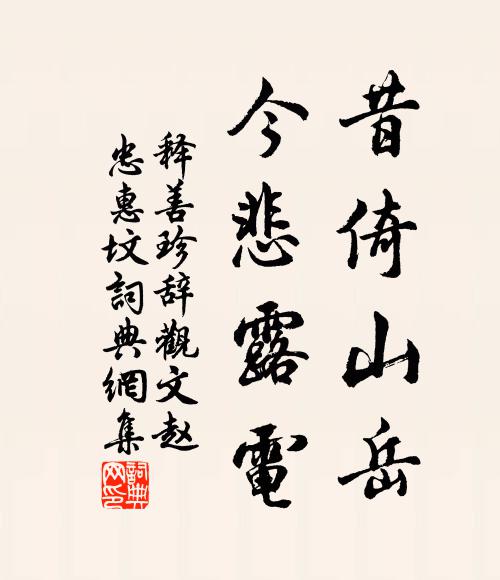 昔倚山岳
今悲露電
释善珍辞觀文赵
忠惠坟詞典網集
詞典网印